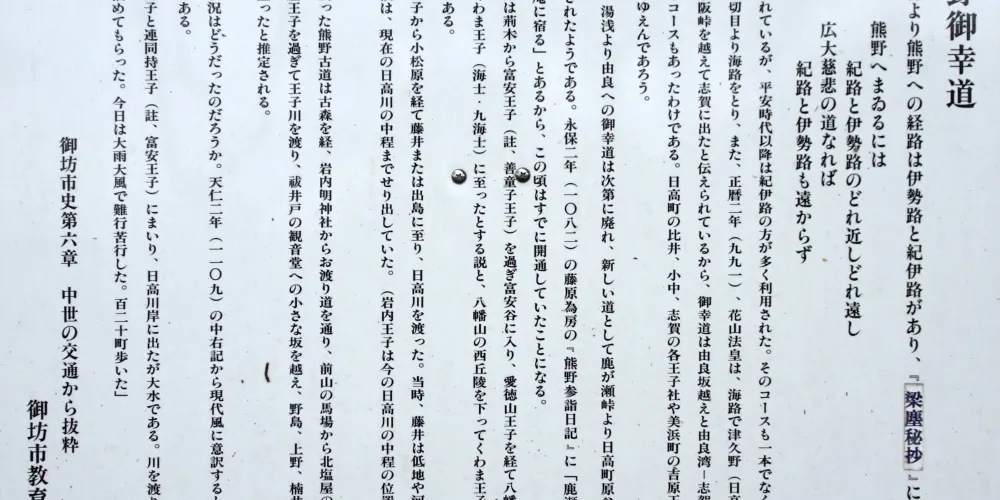 野御幸道
より熊野への経路は伊勢路と紀伊路があり、『梁塵秘抄』に
熊野へまゐるには
紀路と伊勢路のどれ近しどれ遠し
広大慈悲の道なれば
紀路と伊勢路も遠からず
れているが、平安時代以降は紀伊路の方が多く利用された。そのコースも一本でなく
切目より海路をとり、また、正暦二年（九九一）、花山法皇は、海路で津久野（日高
阪峠を越えて志賀に出たと伝えられているから、御幸道は由良坂越えと由良湾－志賀
コースもあったわけである。日高町の比井、小中、志賀の各王子社や美浜町の吉原王
ゆえんであろう。
湯浅より由良への御幸道は次第に廃れ、新しい道として鹿が瀬峠より日高町原谷
されたようである。永保二年（一〇八二）の藤原為房の『熊野参詣日記』に「鹿瀬
庵に宿る」とあるから、この頃はすでに開通していたことになる。
は荊木から富安王子（註、善童子王子）を過ぎ富安谷に入り、愛徳山王子を経て八幡
わま王子（海士・九海士）に至ったとする説と、八幡山の西丘陵を下ってくわま王子
ある。
子から小松原を経て藤井または出島に至り、日高川を渡った。当時、藤井は低地や河
は、現在の日高川の中程までせり出していた。（岩内王子は今の日高川の中程の位置
った熊野古道は古森を経、岩内明神社からお渡り道を通り、前山の馬場から北塩屋の
王子を過ぎて王子川を渡り、祓井戸の観音堂への小さな坂を越え、野島、上野、楠井
ったと推定される。
況はどうだったのだろうか。天仁二年（一一〇九）の中右記から現代風に意訳すると
ある。
子と連同持王子（註、富安王子）にまいり、日高川岸に出たが大水である。川を渡り
めてもらった。今日は大雨大風で難行苦行した。百二十町歩いた」
御坊市史第六章　中世の交通から抜粋
御坊市教育